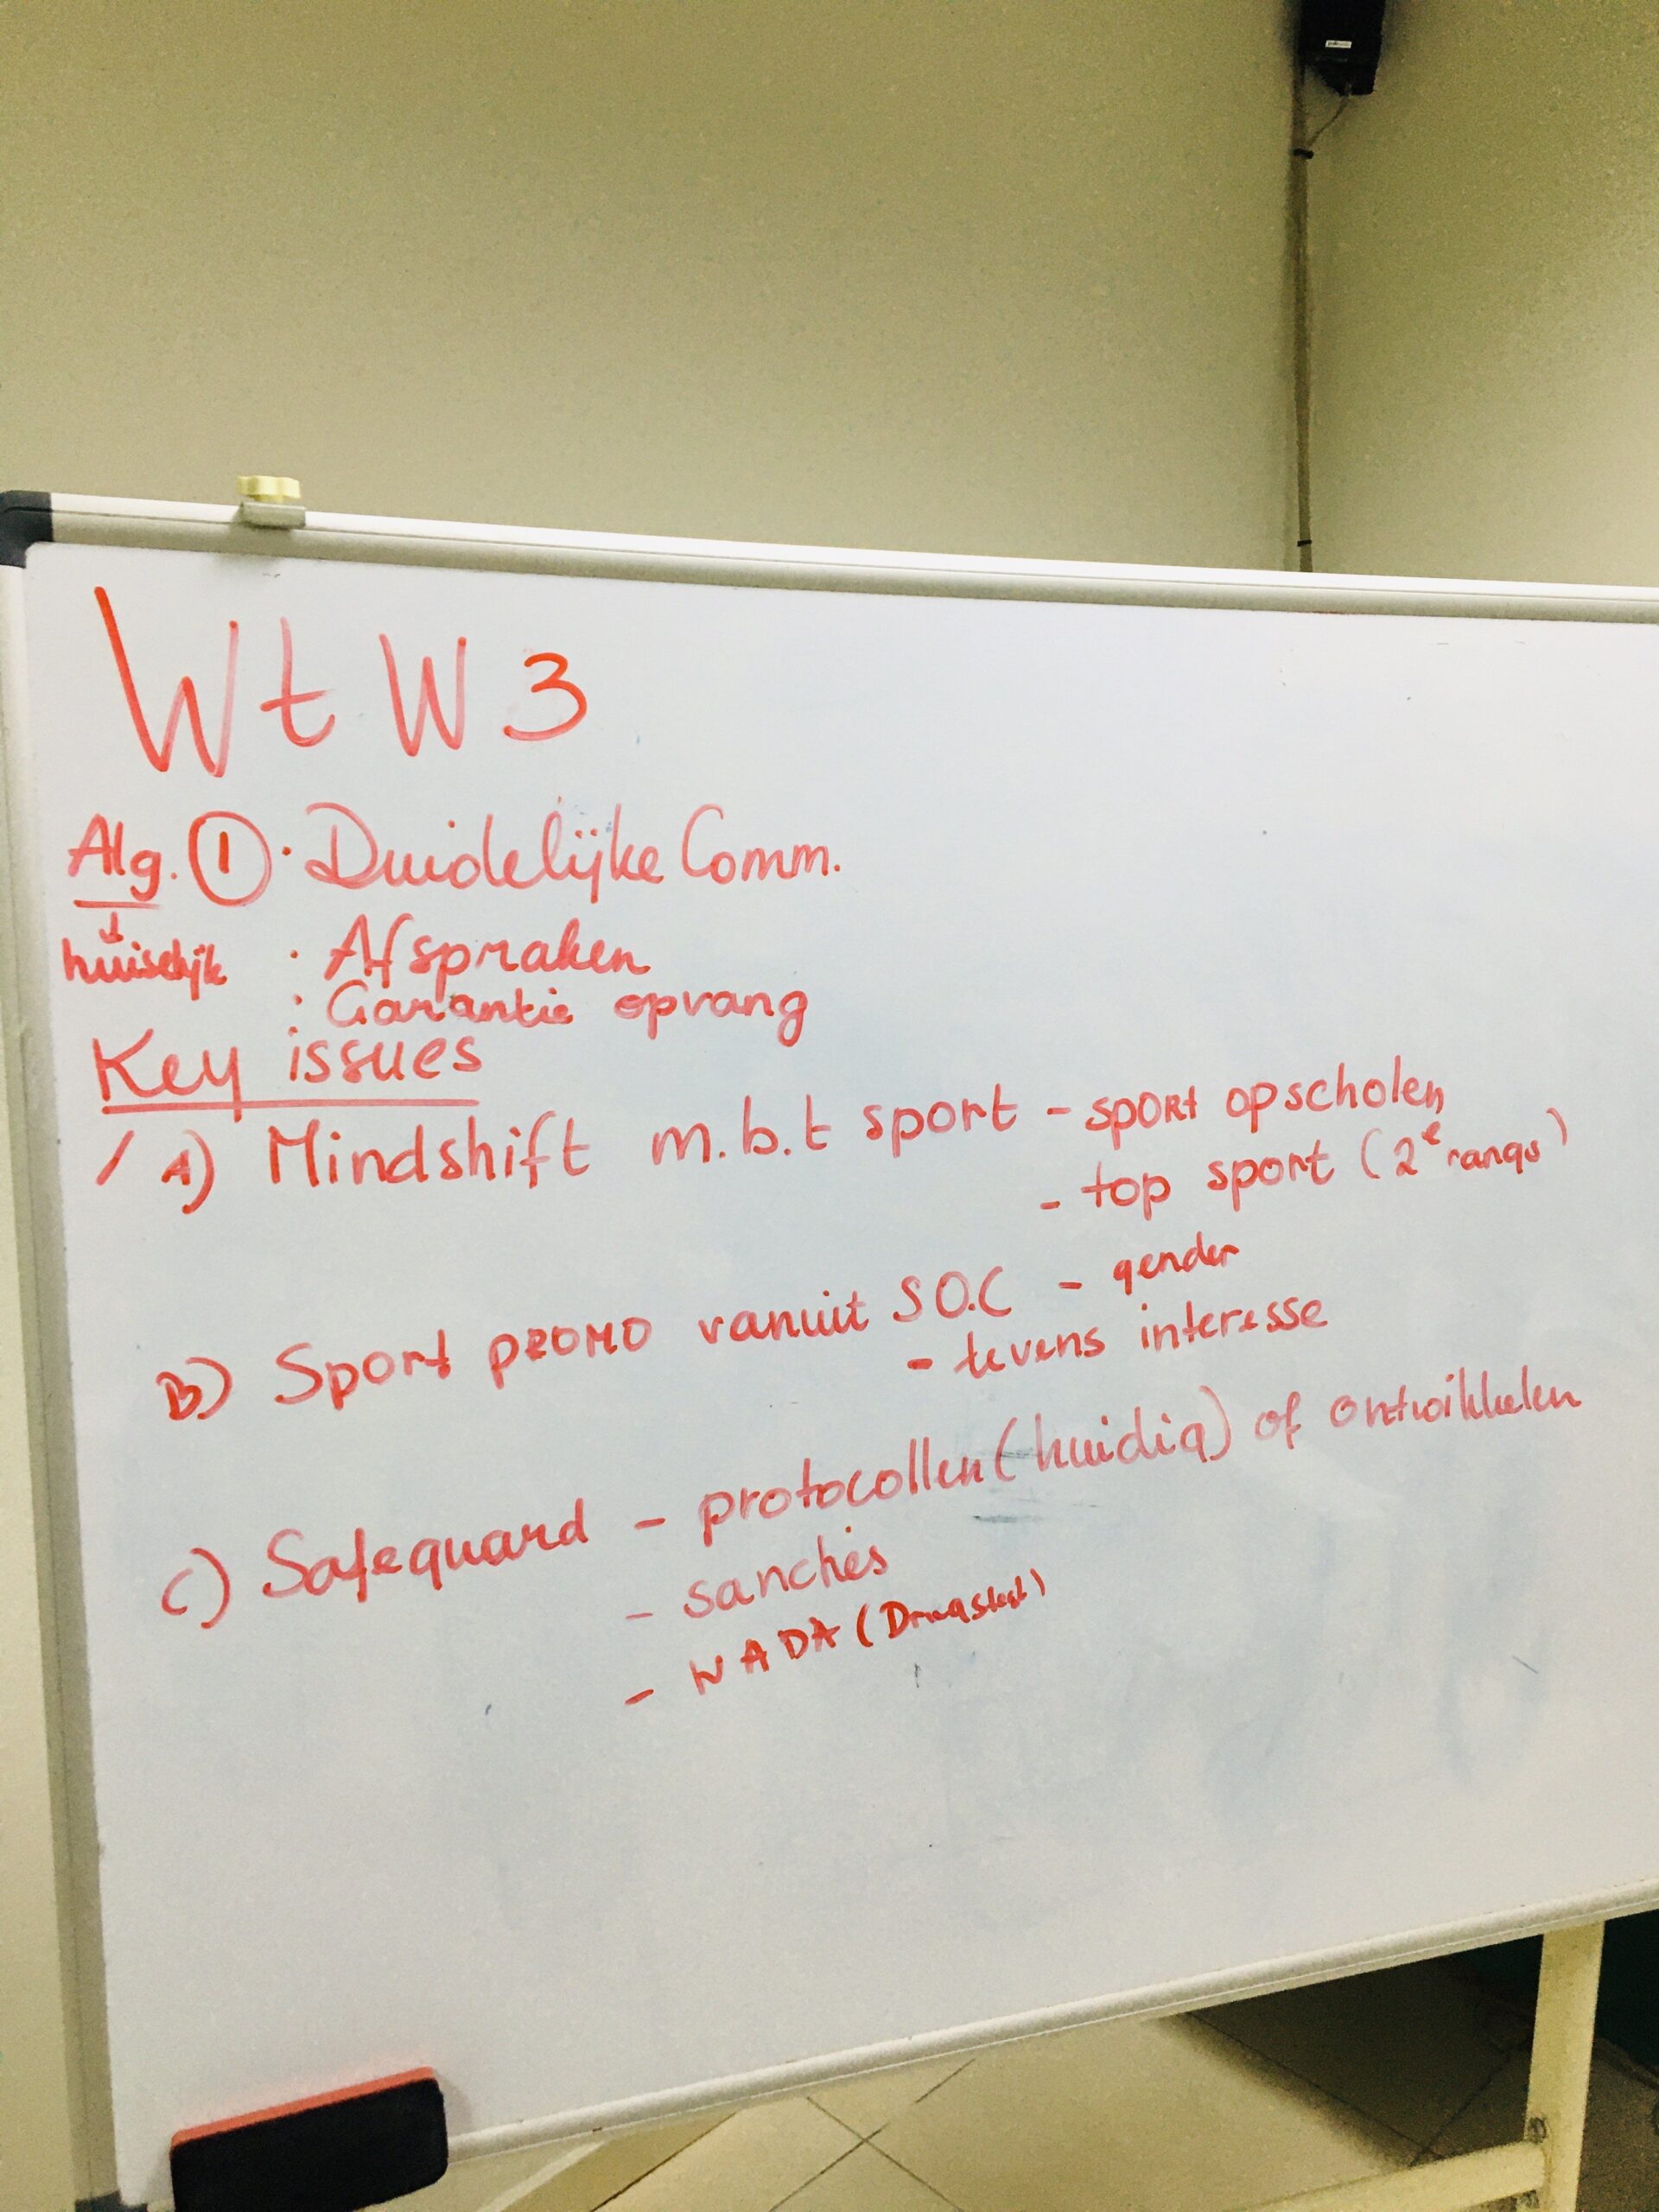 WtW 3
Alg. ① · Duidelijke Comm.
huiselijk · Afspraken
: Garantie opvang
Key issues
/ A) Mindshift m.b.t sport - sport op scholen
- top sport (2e rangs)
B) Sport PROMO vanuit S.O.C - gender
- tevens interesse
C) Safeguard - protocollen (huidig) of ontwikkelen
- sancties
- NADA (Drugstest)